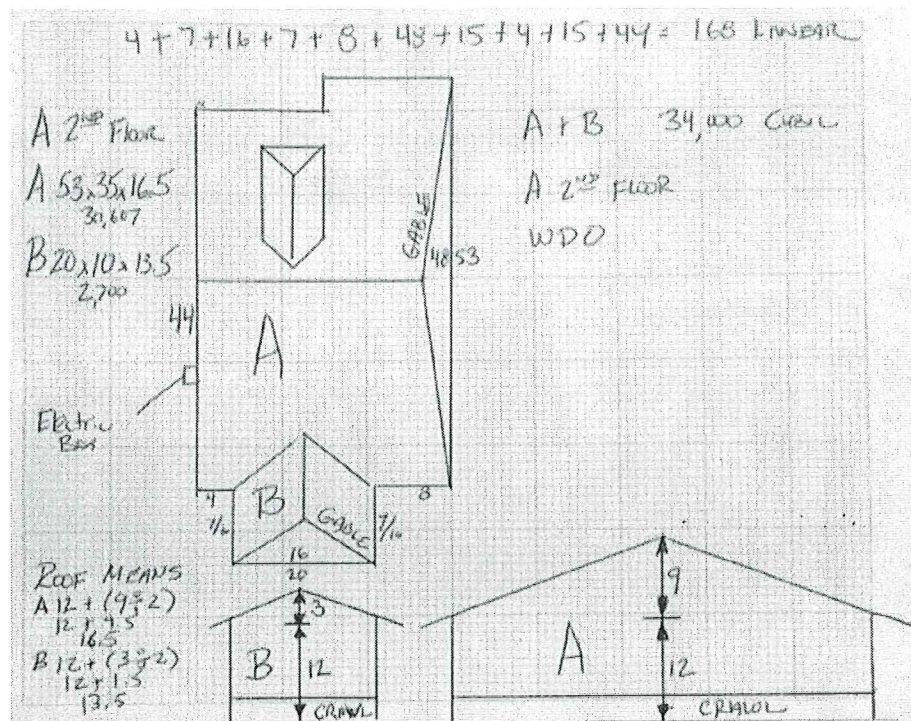 4 + 7 + 16 + 7 + 8 + 48 + 15 + 4 + 15 + 44 = 168 LINEAR
A 2ND FLOOR
A 53x35x16.5
30,607
B 20x10x13.5
2,700
A + B 34,000 CUBIC
A 2ND FLOOR
WDO
GABLE
48 53
44
A
ELECTRIC
BOX
4
B
8
7/10
GABLE
7/10
16
20
ROOF MEANS
A 12 + (9 ÷ 2)
12 + 4.5
16.5
B 12 + (3 ÷ 2)
12 + 1.5
13.5
3
B
12
CRAWL
9
A
12
CRAWL